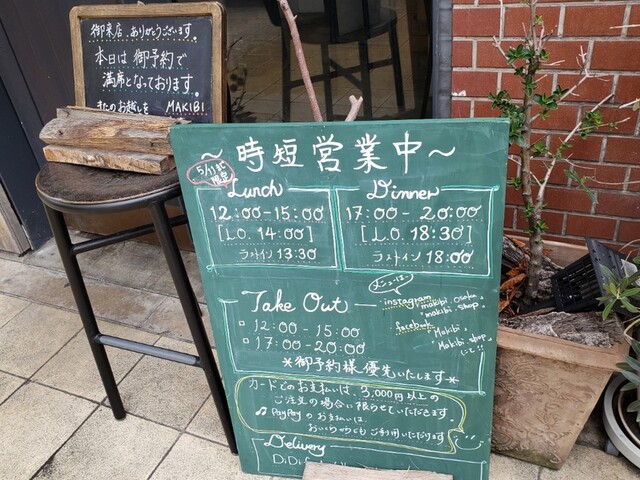 御来店、ありがとうございます。
本日は御予約で
満席となっております。
またのお越しを MAKIBI
〜時短営業中〜
5/11まで
限定
Lunch
12:00-15:00
[L.O. 14:00]
ラストイン 13:30
Dinner
17:00- 20:00
[L.O. 18:30]
ラストイン 18:00
Take Out
12:00 - 15:00
17:00 - 20:00
メニューは…
instagram
makibi.osaka
makibi.shop
facebook
Makibi
Makibi.shop
にて!!
*御予約様優先いたします*
カードでのお支払いは、3,000円以上の
ご注文の場合に限らせていただきます。
♫ PayPayのお支払いは、
おいくらからでもご利用いただけます
Delivery
DiDi